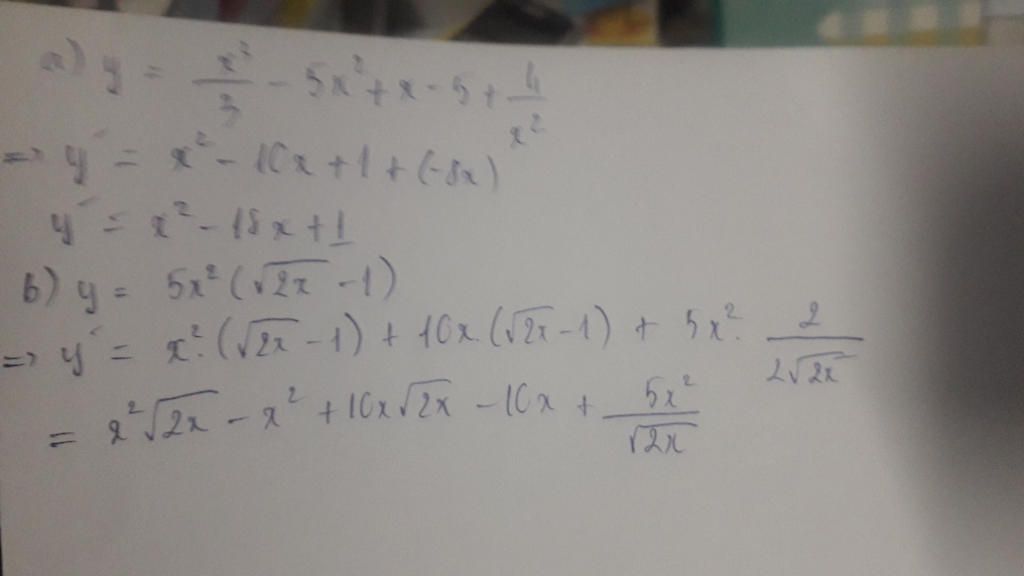 a) y = x³/3 - 5x² + x - 5 + 4/x²
=> y' = x² - 10x + 1 + (-8x)
y' = x² - 18x + 1
b) y = 5x² (√2x - 1)
=> y' = x². (√2x - 1) + 10x. (√2x - 1) + 5x². 2/2√2x
= x²√2x - x² + 10x√2x - 10x + 5x²/√2x